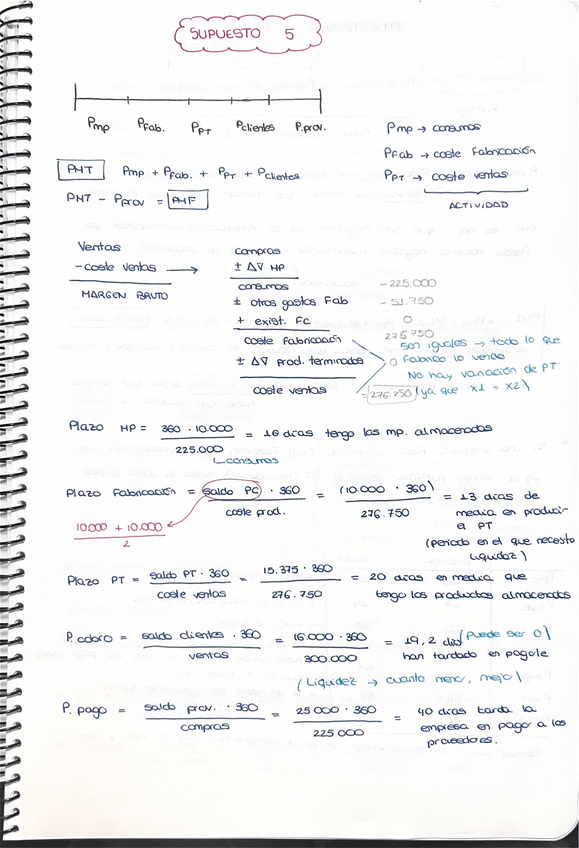 SUPUESTO 5
Pmp Pfab. PPT Pclientes P.prov.
Pmp → consumos
PFab → coste fabricación
PPT → coste ventas
ACTIVIDAD
PMT Pmp + PFab. + PPT + Pclientes
PMT - Pprov = PMF
Ventas
- coste ventas →
MARGEN BRUTO
compras
± ΔV MP
consumos - 225.000
± otros gastos Fab - 51.750
+ exist. FC 0
coste fabricación 276750
son iguales → todo lo que
± ΔV prod. terminados 0 fabrico lo vendo
No hay variación de PT
coste ventas = 276.750 (ya que x1 = x2)
Plazo MP = 360 · 10.000 / 225.000 = 16 días tengo las mp. almacenadas
↳ consumos
Plazo Fabricación = saldo PC · 360 / coste prod. = (10.000 · 360) / 276.750 = 13 días de
media en producir
el PT
(periodo en el que necesito
liquidez)
10.000 + 10.000 / 2
Plazo PT = saldo PT · 360 / coste ventas = 15.375 · 360 / 276.750 = 20 días en media que
tengo los productos almacenados
P. cobro = saldo clientes · 360 / ventas = 16.000 · 360 / 300.000 = 19,2 día (Puede ser 0)
han tardado en pagarle
(Liquidez → cuanto menor, mejor)
P. pago = saldo prov. · 360 / compras = 25 000 · 360 / 225 000 = 40 días tarda la
empresa en pagar a los
proveedores.